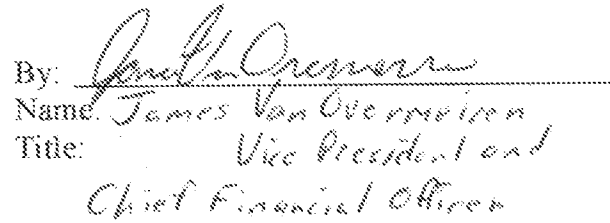 By:
Name: James Van Overmeiren
Title: Vice President and
Chief Financial Officer